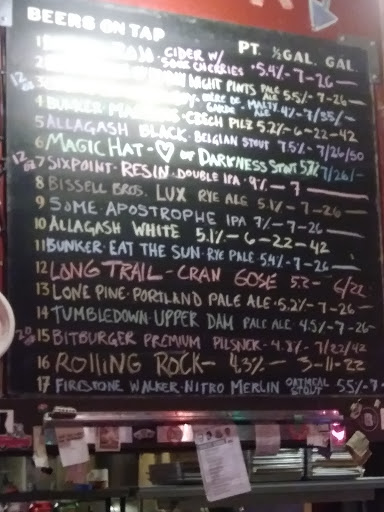 BEERS ON TAP
PT. ½GAL. GAL.
1 CIDER W/
SOUR CHERRIES - 5.4% - 7 - 26 —
2 NIGHT PINTS PALE ALE 5.5% - 7 - 26 —
12oz 3 BIERE DE GARDE - MALTY ALE - 4% - 7/35/ —
4 BUNKER CZECH PILZ 5.2% - 6 - 22 - 42
5 ALLAGASH BLACK - BELGIAN STOUT 7.5% - 7/26/50
6 MAGIC HAT - ♡ OF DARKNESS STOUT 5.7% 7/26/-
12oz 7 SIXPOINT - RESIN - DOUBLE IPA - 9% - 7 —
8 BISSELL BROS. LUX RYE ALE 5.1% - 7 - 26 —
9 SOME APOSTROPHE IPA 7% - 7 - 26 —
10 ALLAGASH WHITE 5.1% - 6 - 22 - 42
11 BUNKER - EAT THE SUN - RYE PALE 5.4% - 7 - 26 —
12 LONG TRAIL - CRAN GOSE 5.2 - 6/22
13 LONE PINE - PORTLAND PALE ALE - 5.2% - 7 - 26
14 TUMBLEDOWN - UPPER DAM PALE ALE 4.5% - 7 - 26 -
20oz 15 BITBURGER PREMIUM PILSNER - 4.8% - 7/22/42
16 ROLLING ROCK - 4.3% - 3 - 11 - 22
17 FIRESTONE WALKER - NITRO MERLIN OATMEAL STOUT 5.5% - 7